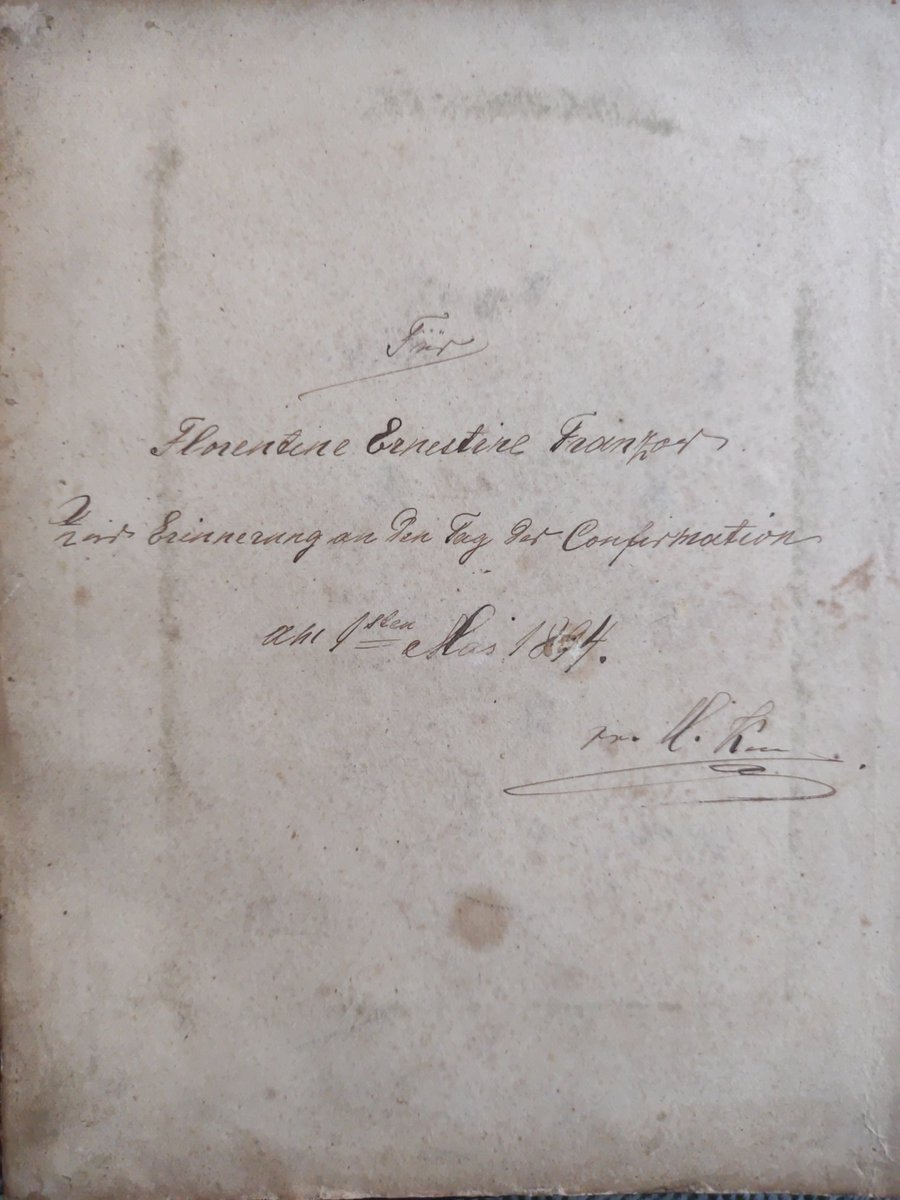 Für
Florentine Ernestine
Zur Erinnerung an den Tag der Confirmation
am 1sten Mai 1894.
M.